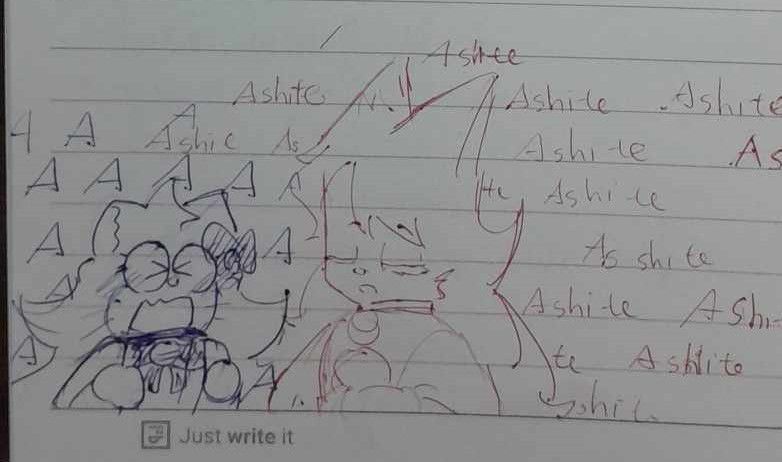 Ashite
Ashite Ashite Ashite
A A A Ashie As Ashi-te As
A A A A A He Ashi-te
A A As shite
A Ashi-te Ashi-
A te Ashite
A
Just write it